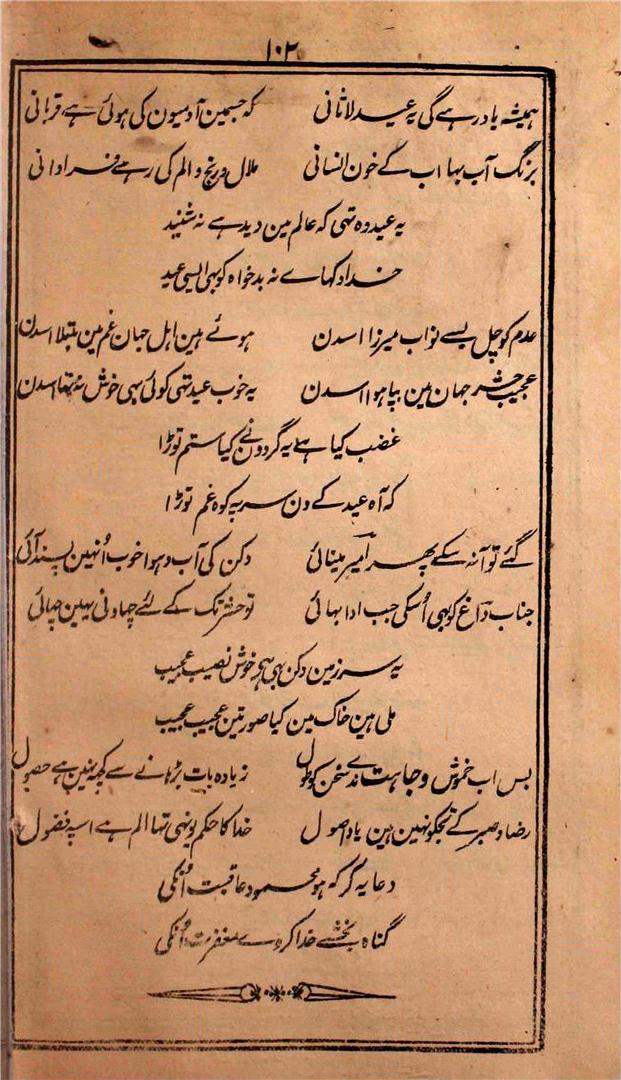 ۱۰۲
ہمیشہ یاد رہے گی یہ عید لاثانی کہ جسمین آدمیون کی ہوئی ہے قربانی
برنگ آب بہا اب کے خون انسانی ملال و رنج و الم کی رہے فراوانی
یہ عید وہ تہی کہ عالم مین دید ہے نہ شنید
خدا دکہاے نہ بدخواہ کو بہی ایسی عید
عدم کو چل بسے نواب میرزا اسدن ہوئے ہین اہل جہان غم مین مبتلا اسدن
عجیب حشر جہان مین بپا ہوا اسدن یہ خوب عید تہی کوئی بہی خوش نہ تہا اسدن
غضب کیا ہے یہ گردون نے کیا ستم توڑا
کہ آہ عید کے دن سر پہ کوہ غم توڑا
گئے تو آ نہ سکے پھر امیر مینائی دکن کی آب و ہوا خوب اُنہین پسند آئی
جناب داغ کو بہی اُسکی جب ادا بہائی تو حشر تک کے لئے چہاونی یہین چہائی
یہ سرزمین دکن بہی ہے خوش نصیب عجیب
ملی ہین خاک مین کیا صورتین عجیب عجیب
بس اب خموش وجاہت ندے سخن کو طول زیادہ بات بڑہانے سے کچہ نہین ہے حصول
رضا و صبر کے تجکو نہین ہین یاد اصول خدا کا حکم یونہی تہا الم ہے اسپہ فضول
دعا یہ کر کہ ہو محمود عاقبت اُنکی
گناہ بخشے خدا کردے مغفرت اُنکی